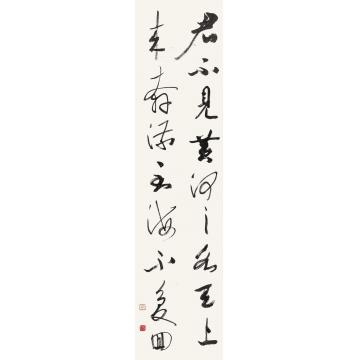 君不見黄河之水天上
来奔流到海不復回